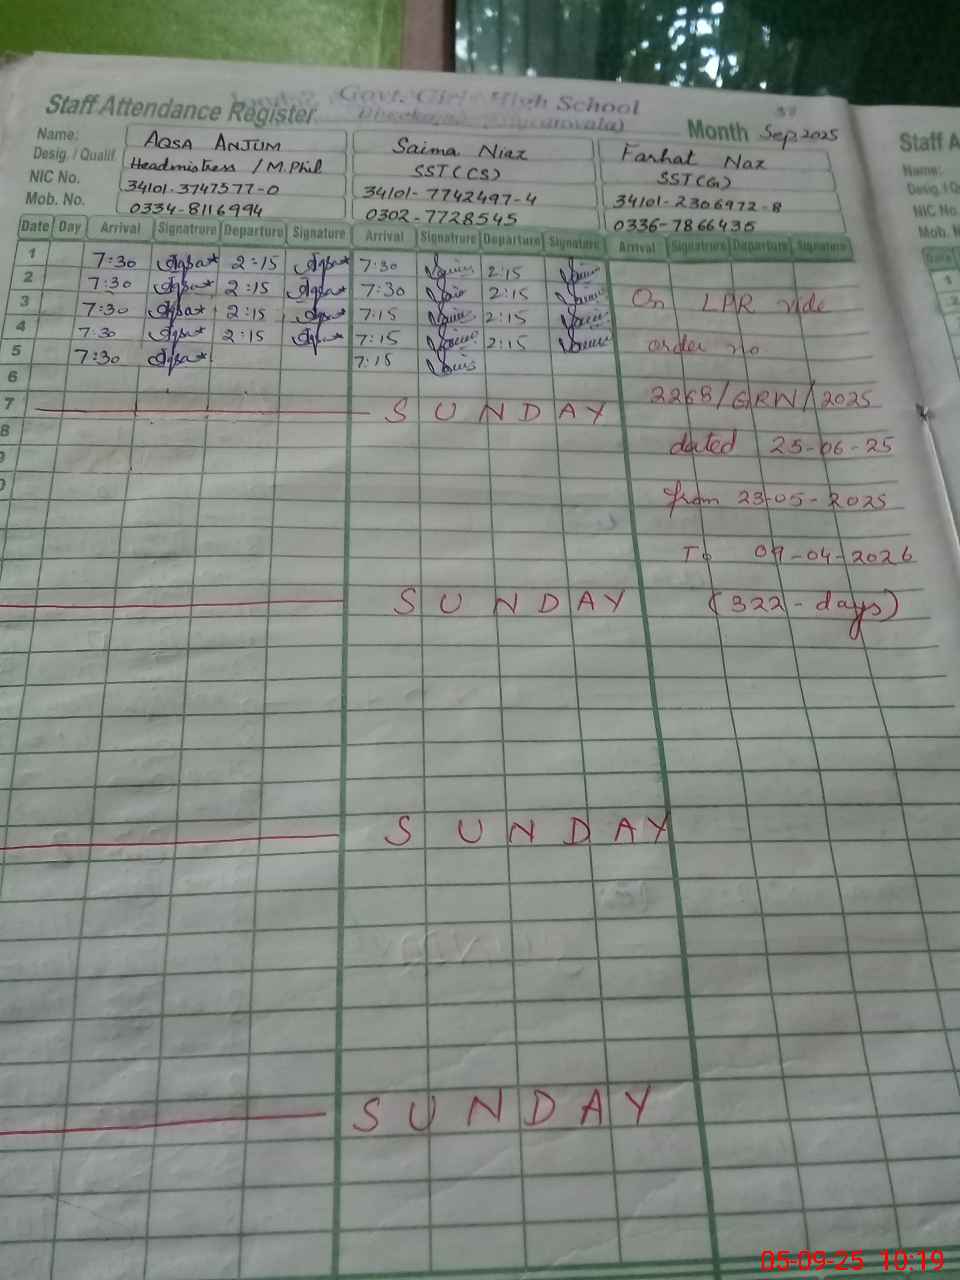 Govt. Girls High School
Staff Attendance Register
Month Sep, 2025
Name: AQSA ANJUM Saima Niaz Farhat Naz
Desig. / Qualif. Headmistress / M.Phil SST(CS) SST(G)
NIC No. 34101-3747577-0 34101-7742497-4 34101-2306972-8
Mob. No. 0334-8116994 0302-7728545 0336-7866435
Date Day Arrival Signatrure Departure Signature Arrival Signatrure Departure Signature Arrival Signatrure Departure Signature
1 7:30 Aqsa 2:15 Aqsa 7:30 2:15
2 7:30 Aqsa 2:15 Aqsa 7:30 2:15
3 7:30 Aqsa 2:15 Aqsa 7:15 2:15
4 7:30 Aqsa 2:15 Aqsa 7:15 2:15
5 7:30 Aqsa 7:15
6
7 SUNDAY
8
SUNDAY
SUNDAY
SUNDAY
On LPR vide
order no
2268/GRW/2025
dated 25-06-25
from 23-05-2025
To 09-04-2026
(322-days)
Staff A
Name:
NIC No
Mob. N
1
05-09-25 10:19